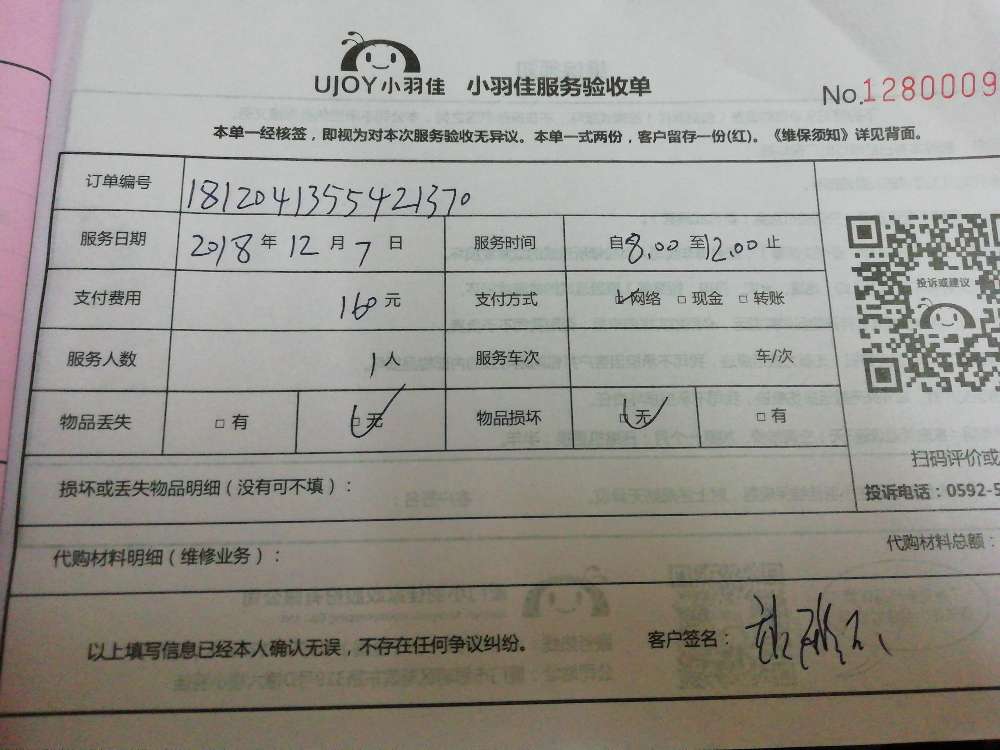 UJOY小羽佳 小羽佳服务验收单
No.1280009
本单一经核签，即视为对本次服务验收无异议。本单一式两份，客户留存一份(红)。《维保须知》详见背面。
订单编号 1812041355421370
服务日期 2018年12月7日 服务时间 自8.00至12.00止
支付费用 160元 支付方式 □网络 □现金 □转账
服务人数 1人 服务车次 车/次
物品丢失 □有 □无 物品损坏 □无 □有
投诉或建议
扫码评价或
投诉电话：0592-5
损坏或丢失物品明细（没有可不填）：
代购材料明细（维修业务）： 代购材料总额：
以上填写信息已经本人确认无误，不存在任何争议纠纷。 客户签名：